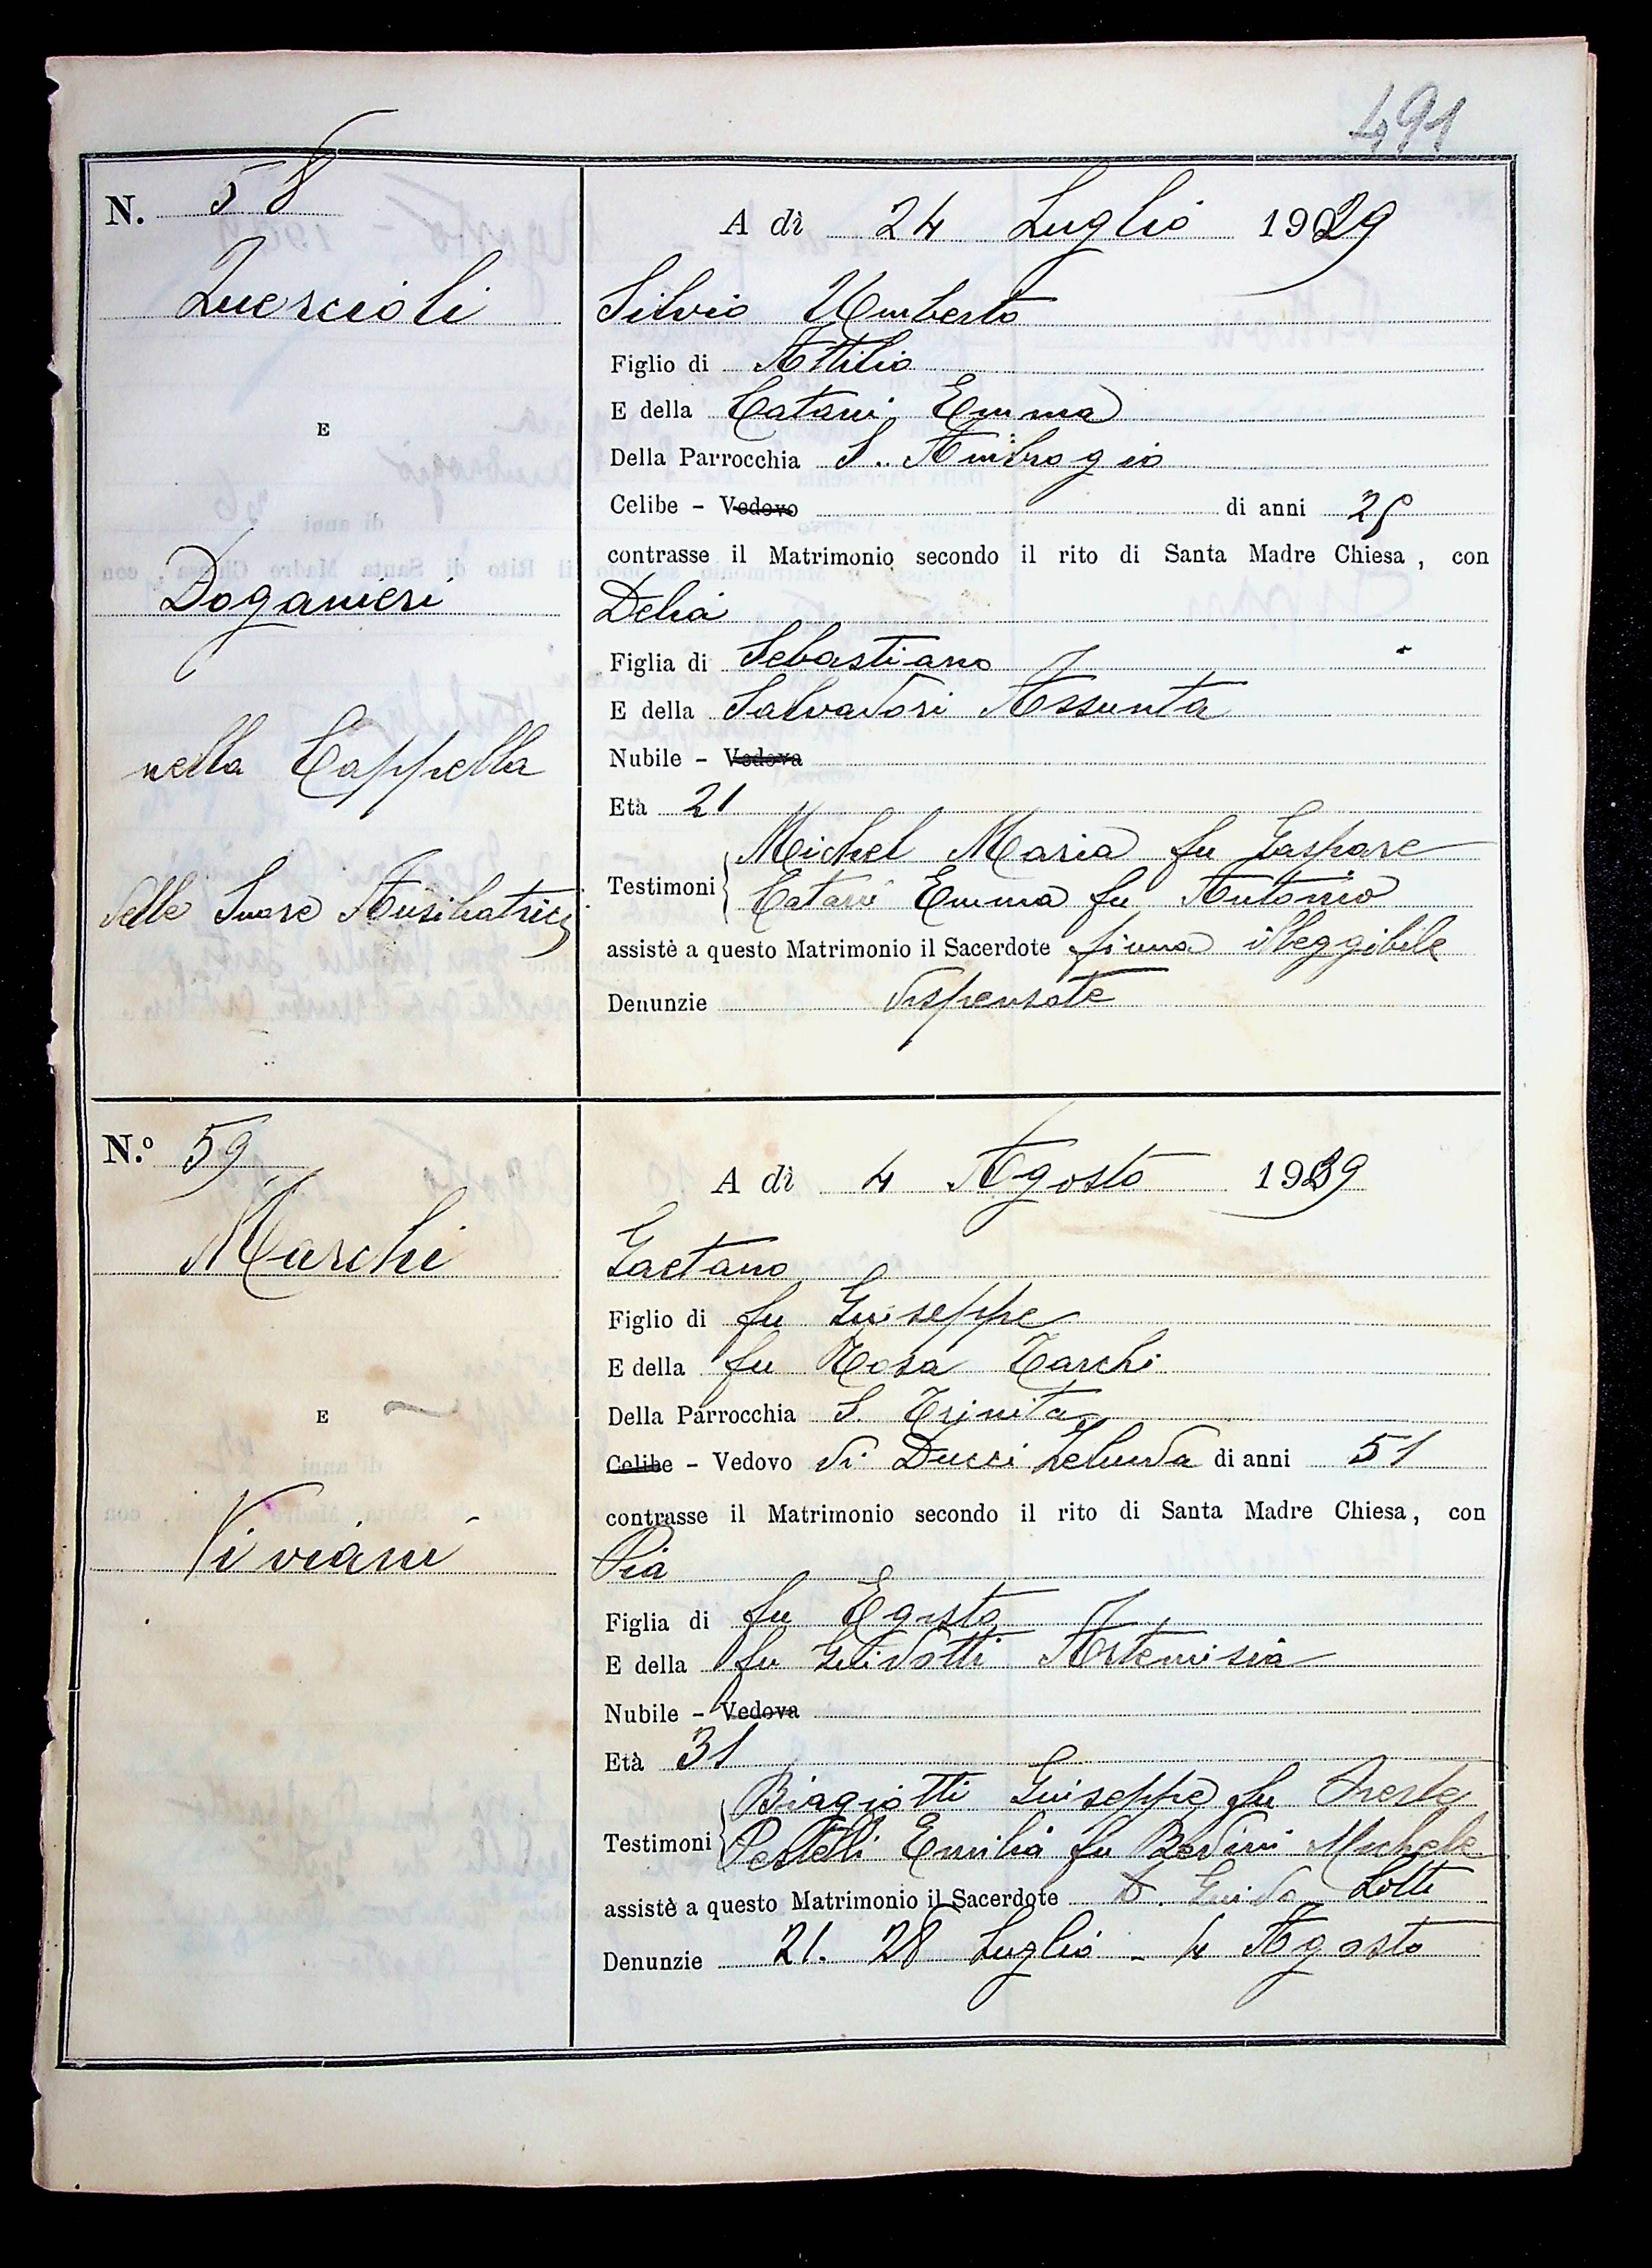 491
N. 58
A dì 24 Luglio 1929
Quercioli
Silvio Umberto
Figlio di Attilio
E della Catani Emma
E
Della Parrocchia S. Ambrogio
Celibe - Vedovo di anni 25
contrasse il Matrimonio secondo il rito di Santa Madre Chiesa, con
Doganieri
Delia
Figlia di Sebastiano
E della Salvadori Assunta
nella Cappella
Nubile - Vedova
Età 21
delle Suore Ausiliatrici
Testimoni Michel Maria fu Gaspare
Catani Emma fu Antonio
assistè a questo Matrimonio il Sacerdote firma illeggibile
Denunzie dispensate
N.º 59
A dì 4 Agosto 1929
Marchi
Gaetano
Figlio di fu Giuseppe
E della fu Rosa Tarchi
E
Della Parrocchia S. Trinita
Celibe - Vedovo di Ducci Zelinda di anni 51
contrasse il Matrimonio secondo il rito di Santa Madre Chiesa, con
Viviani
Pia
Figlia di fu Egisto
E della fu Guidotti Artemisia
Nubile - Vedova
Età 31
Testimoni Biagiotti Giuseppe fu Oreste
Pestelli Emilia fu Bedini Michele
assistè a questo Matrimonio il Sacerdote D. Guido Lotti
Denunzie 21. 28 Luglio - 4 Agosto